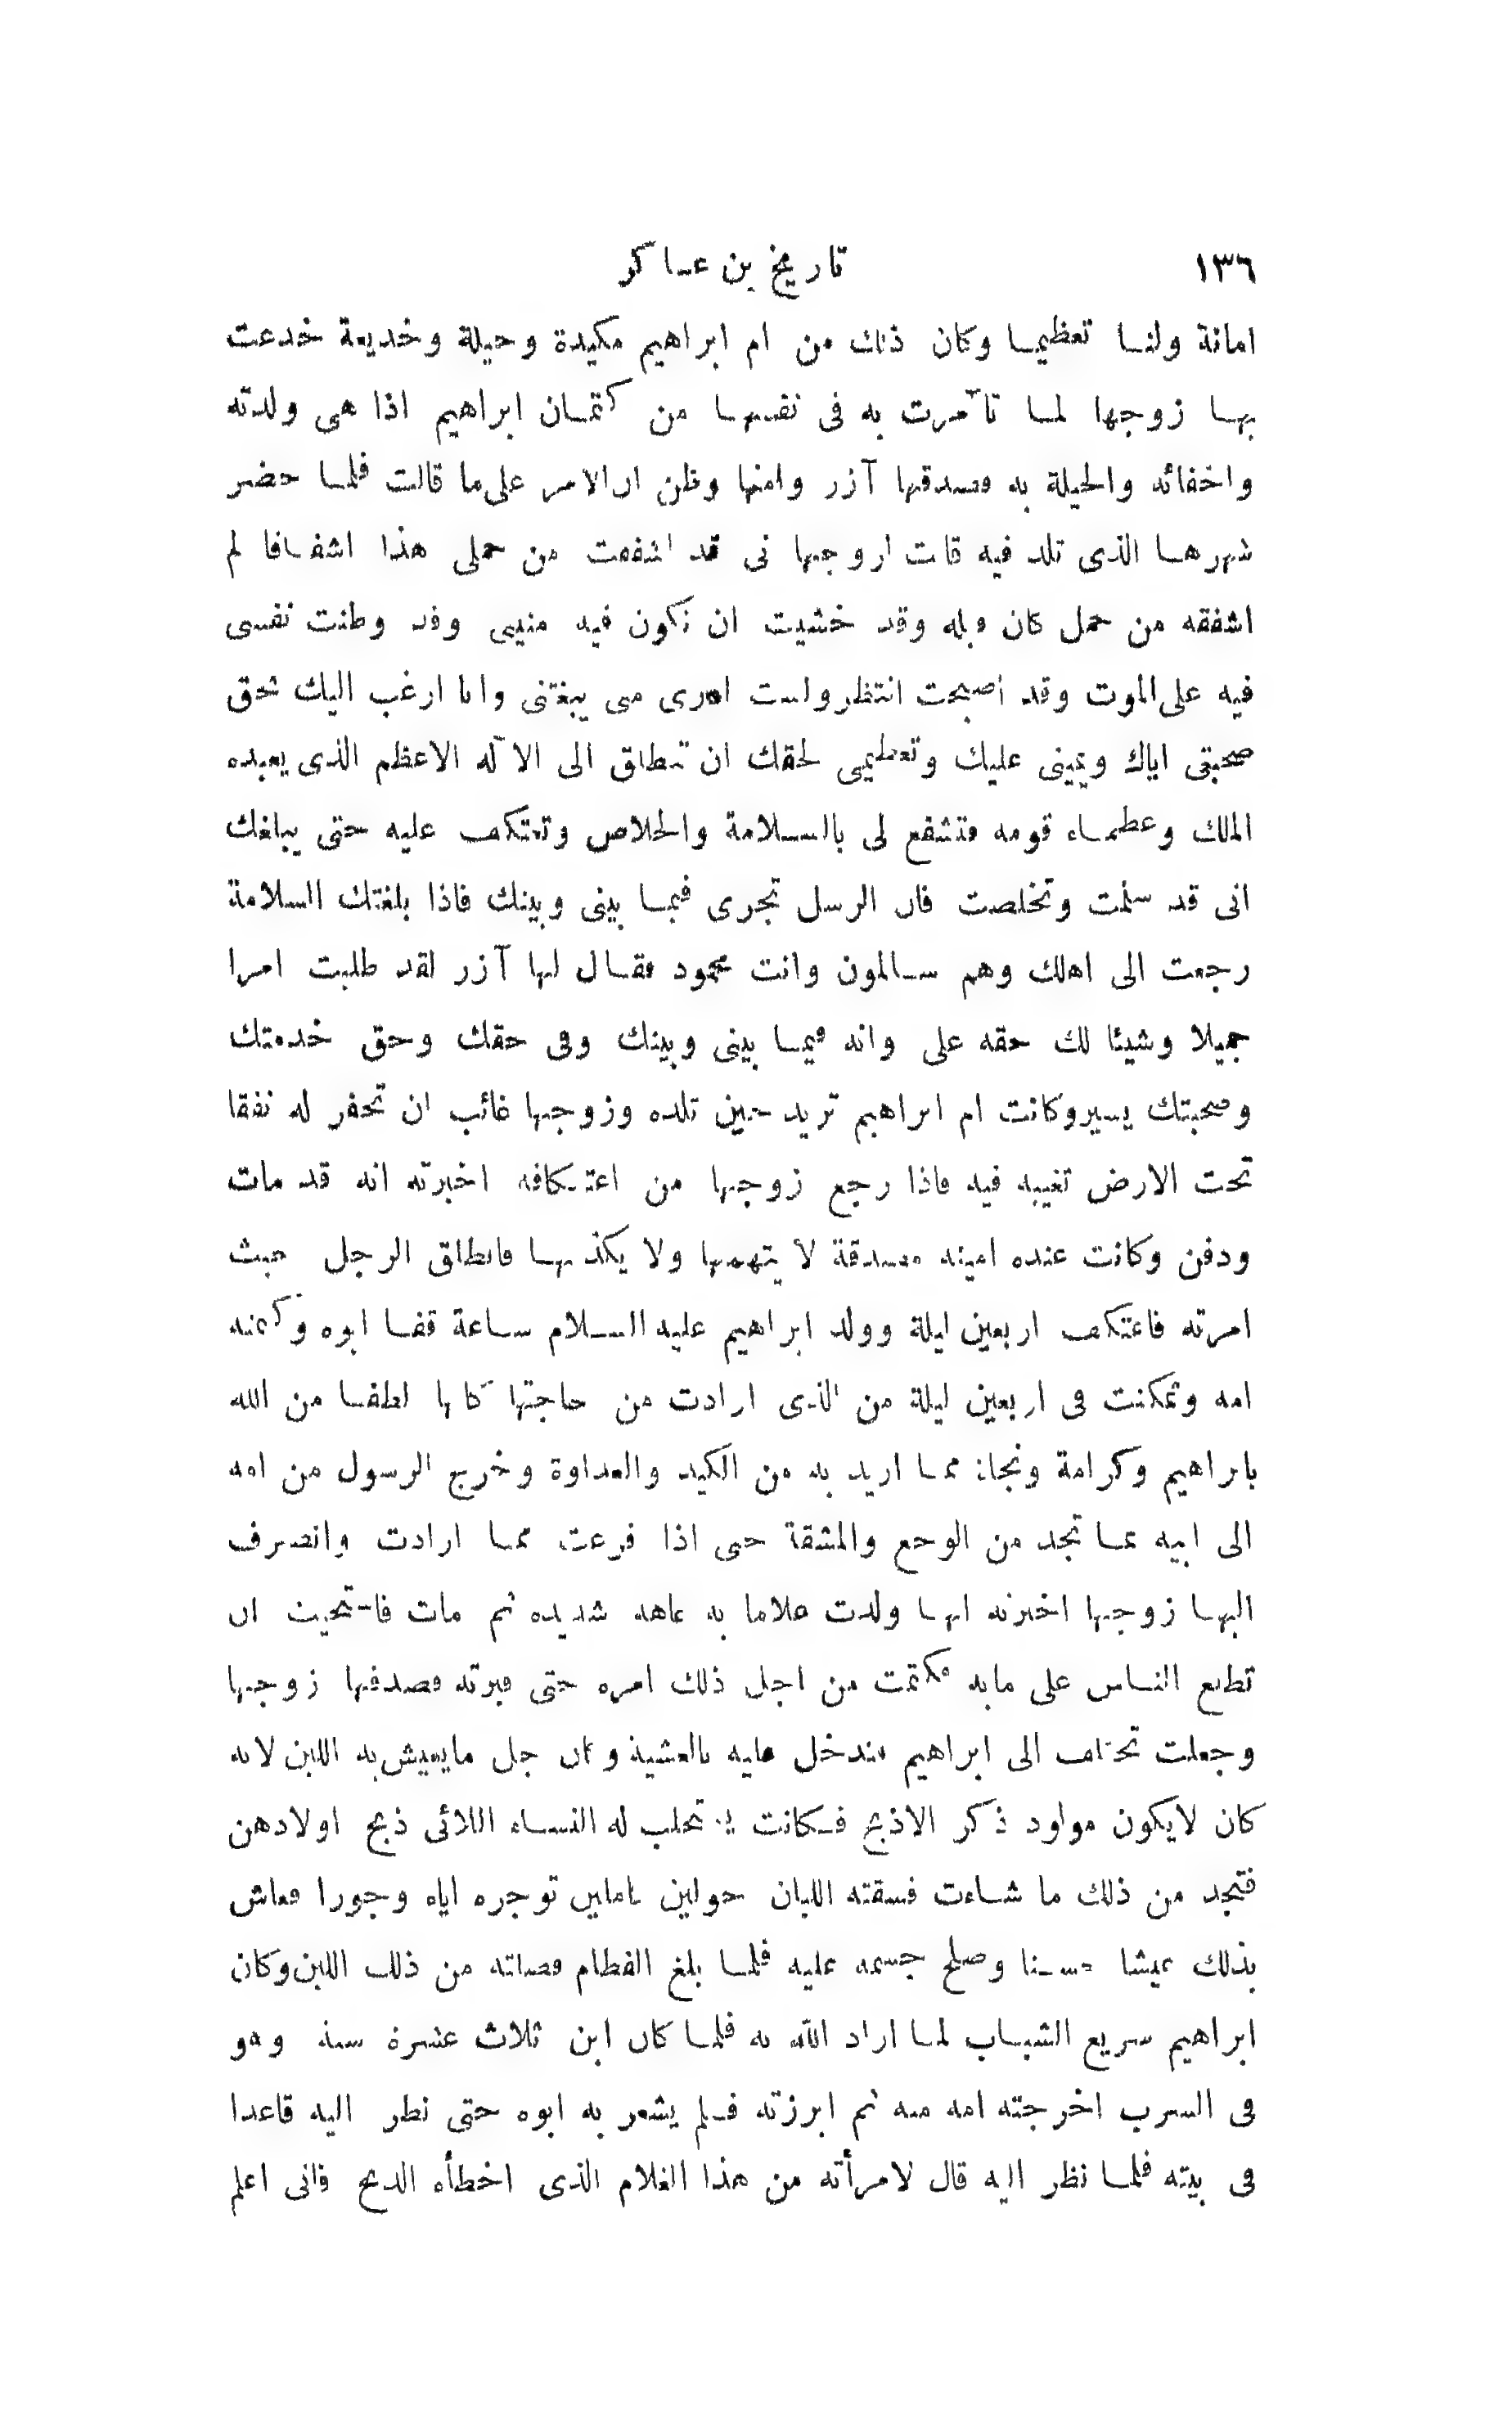 ١٣٦ تاريخ بن عساكر
امانة ولنا تعظيما وكان ذلك من ام ابراهيم مكيدة وحيلة وخديعة خدعت
بها زوجها لما تآمرت به فى نفسها من كتمان ابراهيم اذا هى ولدته
واخفائه والحيلة به فصدقها آزر وامنها وظن ان الامر على ما قالت فلما حضر
شهرها الذى تلد فيه قالت لزوجها نى قد اشفقت من حملى هذا اشفاقا لم
اشفقه من حمل كان قبله وقد خشيت ان تكون فيه منيتى وقد وطنت نفسى
فيه على الموت وقد اصبحت انتظر ولست ادرى متى يبغتنى وانا ارغب اليك بحق
صحبتى اياك ويمينى عليك وتعظيمى لحقك ان تنطلق الى الاآله الاعظم الذى يعبده
الملك وعظماء قومه فتشفع لى بالسلامة والخلاص وتعتكف عليه حتى يبلغك
انى قد سلمت وتخلصت فان الرسل تجرى فيما بينى وبينك فاذا بلغتك السلامة
رجعت الى اهلك وهم سالمون وانت محمود فقال لها آزر لقد طلبت امرا
جميلا وشيئا لك حقه على وانه فيما بينى وبينك وفى حقك وحق خدمتك
وصحبتك يسير وكانت ام ابراهيم تريد حين تلده وزوجها غائب ان تحفر له نفقا
تحت الارض تغيبه فيه فاذا رجع زوجها من اعتكافه اخبرته انه قد مات
ودفن وكانت عنده امينه مصدقة لا يتهمها ولا يكذبها فانطلق الرجل حيث
امرته فاعتكف اربعين ليلة وولد ابراهيم عليه السلام ساعة قفا ابوه وكتمته
امه وتمكنت فى اربعين ليلة من الذى ارادت من حاجتها كلها لطفا من الله
بابراهيم وكرامة ونجاة مما اريد به من الكيد والعداوة وخرج الرسول من امه
الى ابيه عما تجد من الوجع والمشقة حتى اذا فرغت مما ارادت وانصرف
اليها زوجها اخبرته انها ولدت غلاما به عاهه شديده ثم مات فاستحيت ان
تطلع الناس على مابه فكتمت من اجل ذلك امره حتى قبرته فصدقها زوجها
وجعلت تختلف الى ابراهيم فتدخل عليه بالعشية وكان جل مايعيش به اللبن لانه
كان لايكون مولود ذكر الا ذبح فكانت تحلب له النساء اللائى ذبح اولادهن
فتجد من ذلك ما شاءت فسقته اللبان حولين كاملين توجره اياه وجورا فعاش
بذلك عيشا حسنا وصلح جسمه عليه فلما بلغ الفطام فصلته من ذلك اللبن وكان
ابراهيم سريع الشباب لما اراد الله به فلما كان ابن ثلاث عشرة سنة وهو
فى السرب اخرجته امه منه ثم ابرزته فلم يشعر به ابوه حتى نظر اليه قاعدا
فى بيته فلما نظر اليه قال لامرأته من هذا الغلام الذى اخطأه الذبح فانى اعلم